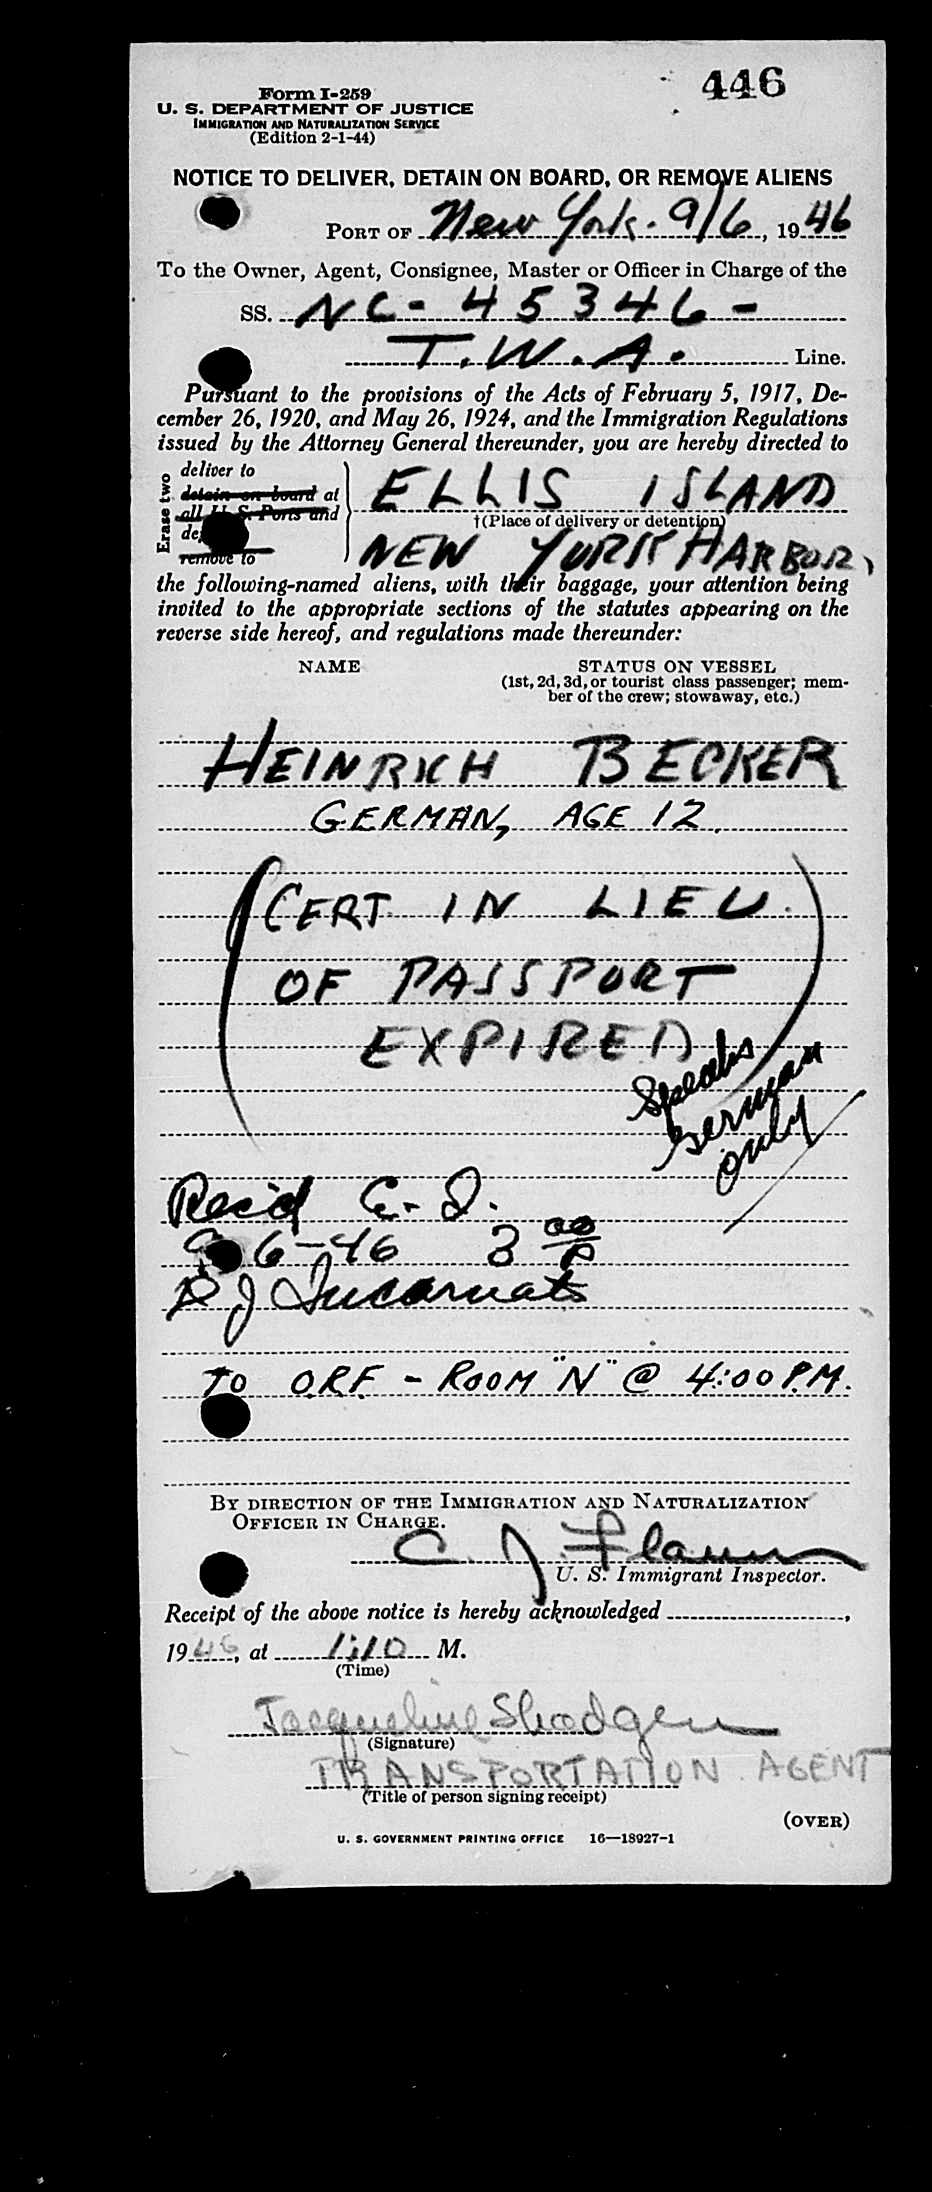 446
Form I-259
U. S. DEPARTMENT OF JUSTICE
IMMIGRATION AND NATURALIZATION SERVICE
(Edition 2-1-44)
NOTICE TO DELIVER, DETAIN ON BOARD, OR REMOVE ALIENS
PORT OF New York. 9/6, 1946
To the Owner, Agent, Consignee, Master or Officer in Charge of the
SS. NC-45346-
T.W.A. Line.
Pursuant to the provisions of the Acts of February 5, 1917, De-
cember 26, 1920, and May 26, 1924, and the Immigration Regulations
issued by the Attorney General thereunder, you are hereby directed to
Erase two
deliver to
detain on board at
all U. S. Ports and
remove to
ELLIS ISLAND
†(Place of delivery or detention)
NEW YORK HARBOR,
the following-named aliens, with their baggage, your attention being
invited to the appropriate sections of the statutes appearing on the
reverse side hereof, and regulations made thereunder:
NAME STATUS ON VESSEL
(1st, 2d, 3d, or tourist class passenger; mem-
ber of the crew; stowaway, etc.)
HEINRICH BECKER
GERMAN, AGE 12.
(CERT IN LIEU.
OF PASSPORT
EXPIRED)
Speaks
German
only
Rec'd E. I.
9-6-46 3 00/P
TO O.R.F. - ROOM "N" @ 4:00 P.M.
BY DIRECTION OF THE IMMIGRATION AND NATURALIZATION
OFFICER IN CHARGE.
C. J.
U. S. Immigrant Inspector.
Receipt of the above notice is hereby acknowledged,
1946, at 1:10 M.
(Time)
Jacqueline
(Signature)
TRANSPORTATION AGENT
(Title of person signing receipt)
(OVER)
U. S. GOVERNMENT PRINTING OFFICE 16—18927-1